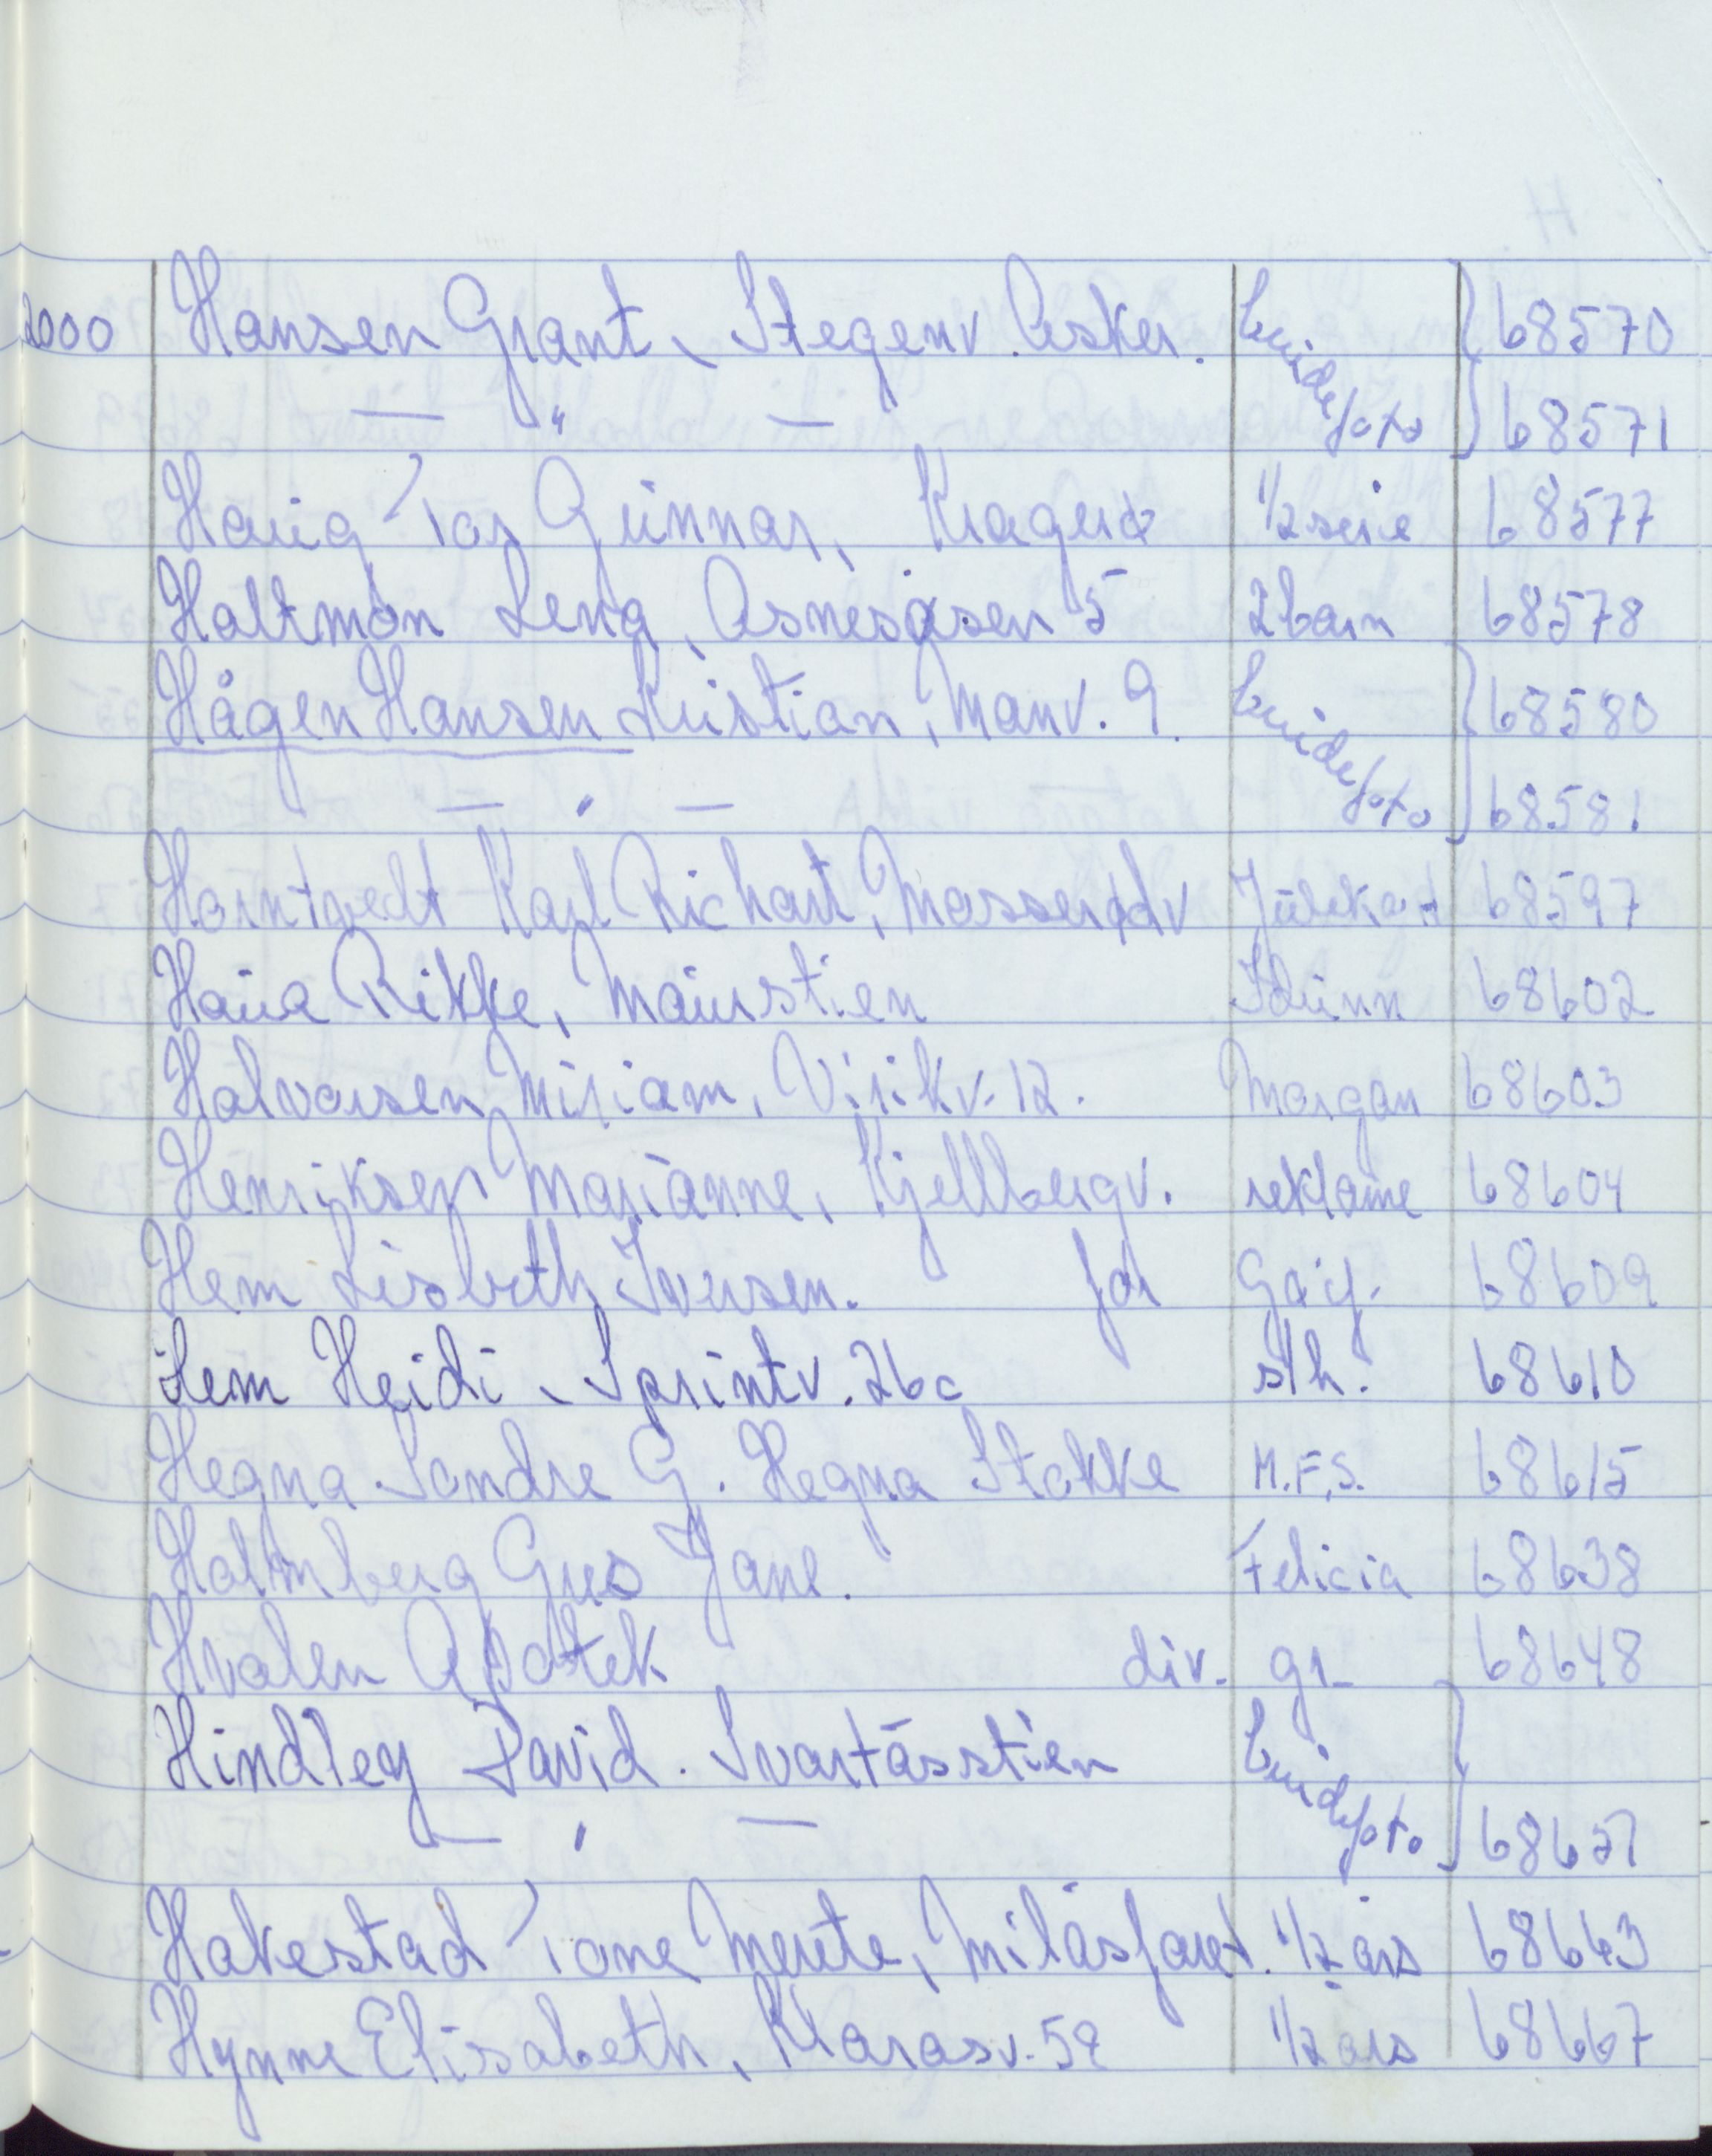 2000 Hansen Grant, Stegenv. Asker. brudefoto 68570
— " — 68571
Hauig Tor Gunnar, Kragerø 1/2 serie 68577
Holtmon Lena, Asnesåsen 5 2 barn 68578
Hågen Hansen Kristian, Manv. 9. brudefoto 68580
— " — 68581
Horntvedt Karl Richart, Mosserødv Julekort 68597
Haua Rikke, Maurstien Idunn 68602
Halvorsen Miriam, Virikv. 12. Morgan 68603
Henriksen Marianne, Kjellbergv. reklame 68604
Hem Lisbeth Iversen. for 68609
Hem Heidi, Sprintv. 26c s/h. 68610
Hegna Sondre G. Hegna Stokke M.F.S. 68615
Holmberg Gus Jane. Felicia 68638
Hvalen Apotek div. gr. 68648
Hindley David. Svartåsstien brudefoto
— " — 68657
Hakestad Tone Merete, Milåsfaret. 1/2 års 68663
Hynne Elisabeth, Klarasv. 52 1/2 års 68667